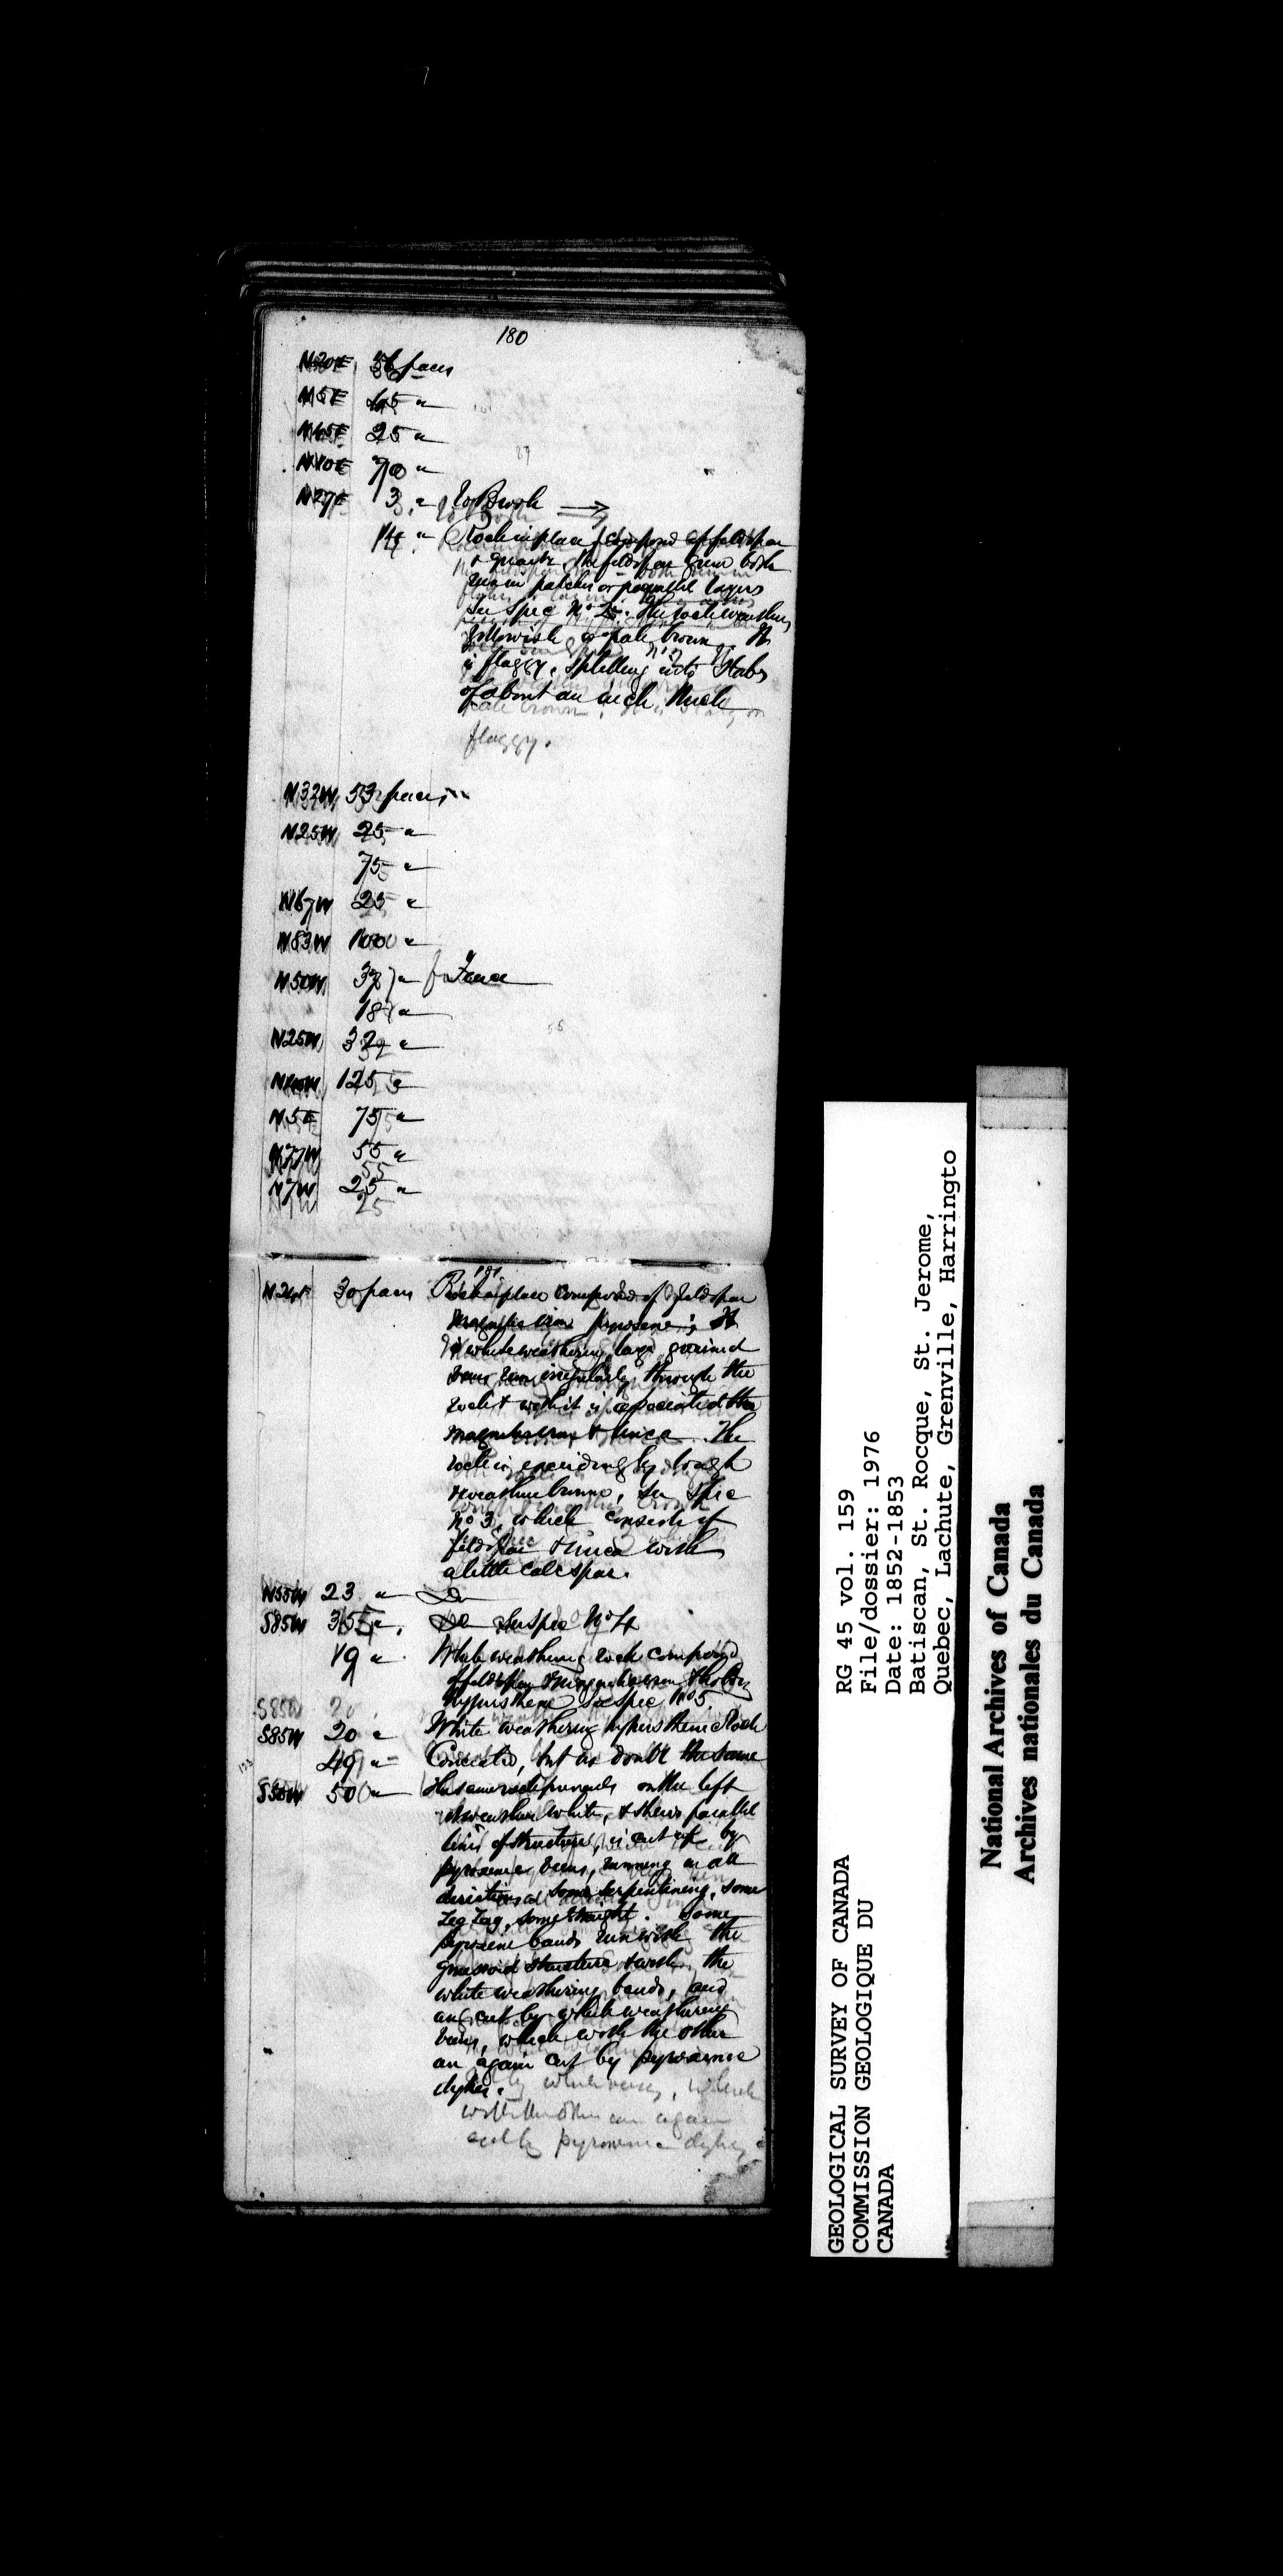 180
N20E 36 paces
N5E 45 "
N65E 25 "
N10E 70 "
N27E 3 " to Brook →
14 " Rock in place composed of feldspar
& quartz, the feldspar green both
in patches or parallel layers
See Spec No 2. The rock weathers
Yellowish or pale brown. It
is flaggy, splitting into slabs
of about an inch thick
flaggy.
N32W 53 paces
N25W 25 "
75 "
N67W 25 "
N83W 100 "
N50W 37 " fence
18 "
N25W 32 "
125 "
N5E 75 "
N77W 55 "
55
N7W 25 "
25
181
30 paces Rock in place composed of feldspar
Magnetic iron pyroxene; It
is white weathering, large grained
veins run irregularly through the
rock & with it is associated the
magnetic iron & mica. The
rock is exceedingly tough
& weathers brown, see spec
No 3, which consists of
feldspar & mica with
a little calcspar.
N55W 23 " Do
S85W 35 " Do See spec No 4
19 " White weathering rock composed
of feldspar & magnetic iron &
hypersthene See spec No 5.
S85W 20
S85W 20 " White weathering hypersthene Rock
49 " Concealed, but no doubt the same
S50W 50 " The same rock prevails on the left
& weathers white, & shews parallel
lines of structure, is cut up by
pyroxenic veins, running in all
directions some serpentining, some
Zeg Zag, some straight. Some
pyroxene bands run with the
gneissoid structure & with the
white weathering bands, and
are cut by white weathering
veins, which with the other
are again cut by pyroxenic
dykes.
with the other are again
cut by pyroxenic dykes
GEOLOGICAL SURVEY OF CANADA
COMMISSION GEOLOGIQUE DU
CANADA
RG 45 vol. 159
File/dossier: 1976
Date: 1852-1853
Batiscan, St. Rocque, St. Jerome,
Quebec, Lachute, Grenville, Harringto
National Archives of Canada
Archives nationales du Canada